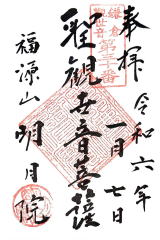 奉拝
令和六年
一月七日
鎌倉
観世音
第三十番
聖観世音菩薩
福源山
明月院